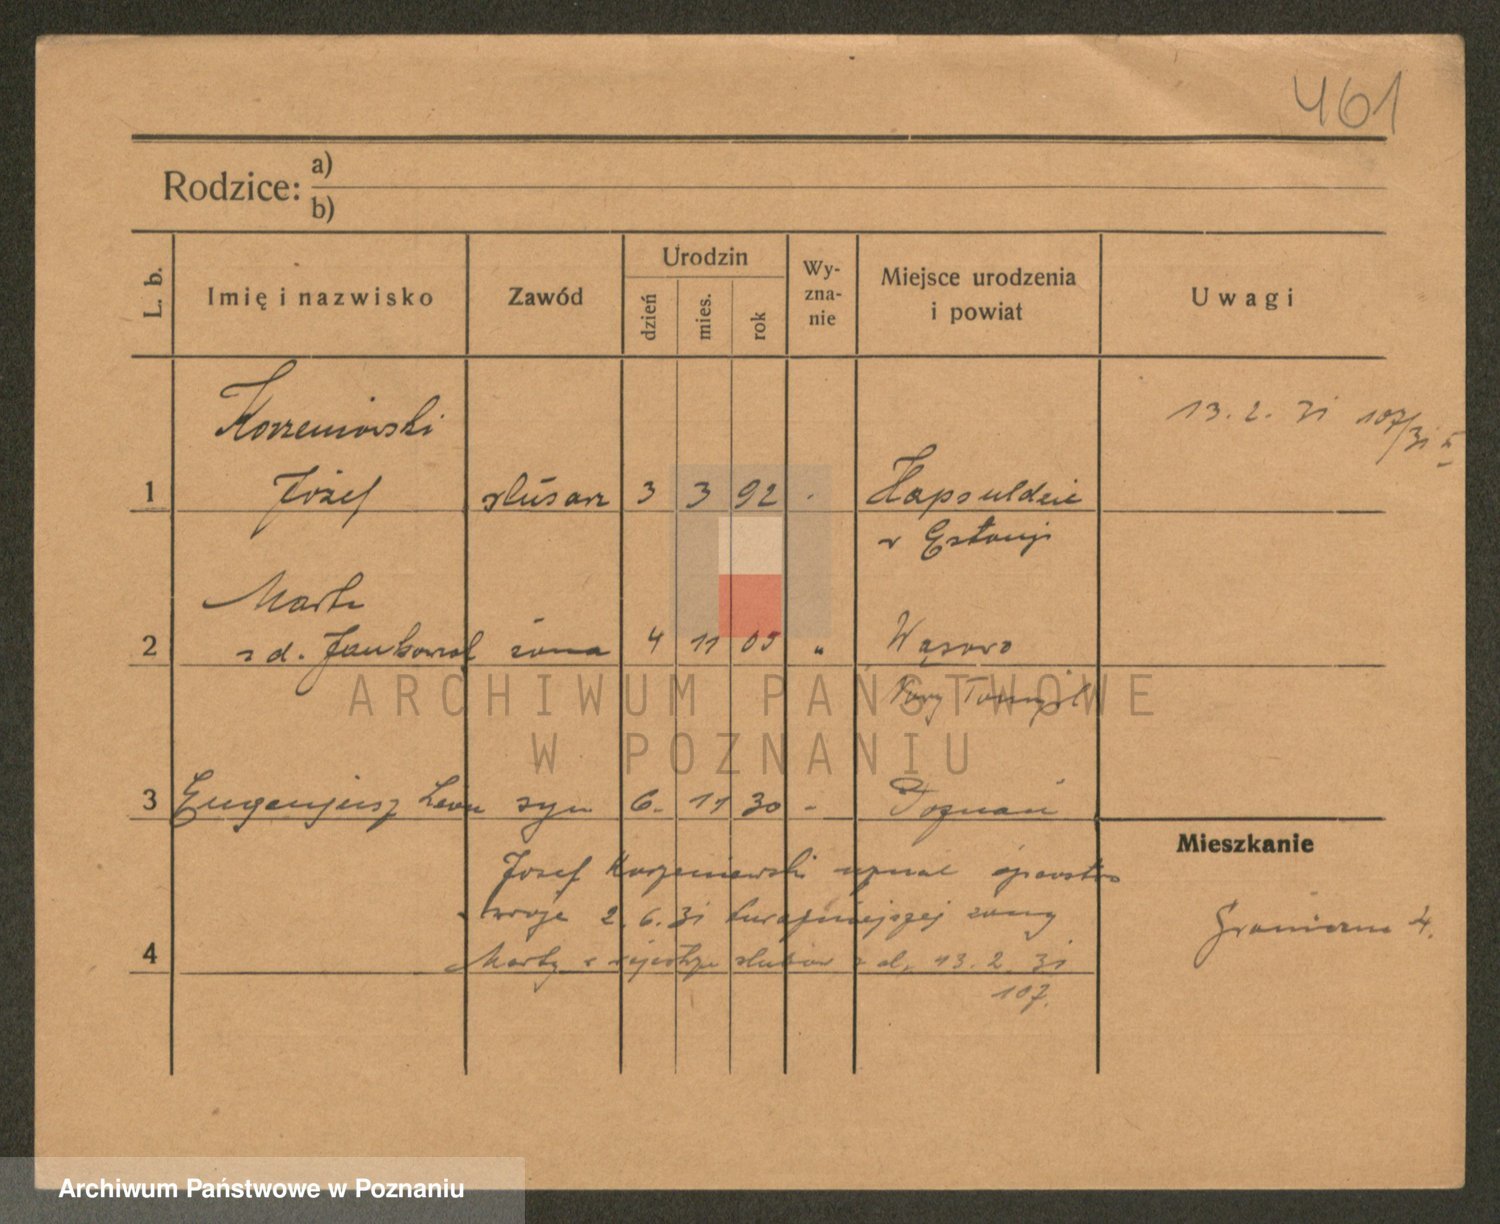 461
Rodzice: a)
b)
L. b. Imię i nazwisko Zawód Urodzin dzień mies. rok Wy-zna-nie Miejsce urodzenia i powiat Uwagi
13. 2. 31 107/31
Korzeniowski
1 Józef ślusarz 3 3 92 Hapsuldzie
w Estonji
Marta
2 z d. żona 4 11 05 „ Wąsowo
Nowy Tomyśl
3 Eugenjusz Leon syn 6. 11 30 - Poznań
Mieszkanie
Józef Korzeniewski uznał ojcostwo
swoje 2.6.31 żony
4 Marty w rejestrze ślubów z d. 13. 2. 31
107.
Graniczna 4.
ARCHIWUM PAŃSTWOWE
W POZNANIU
Archiwum Państwowe w Poznaniu